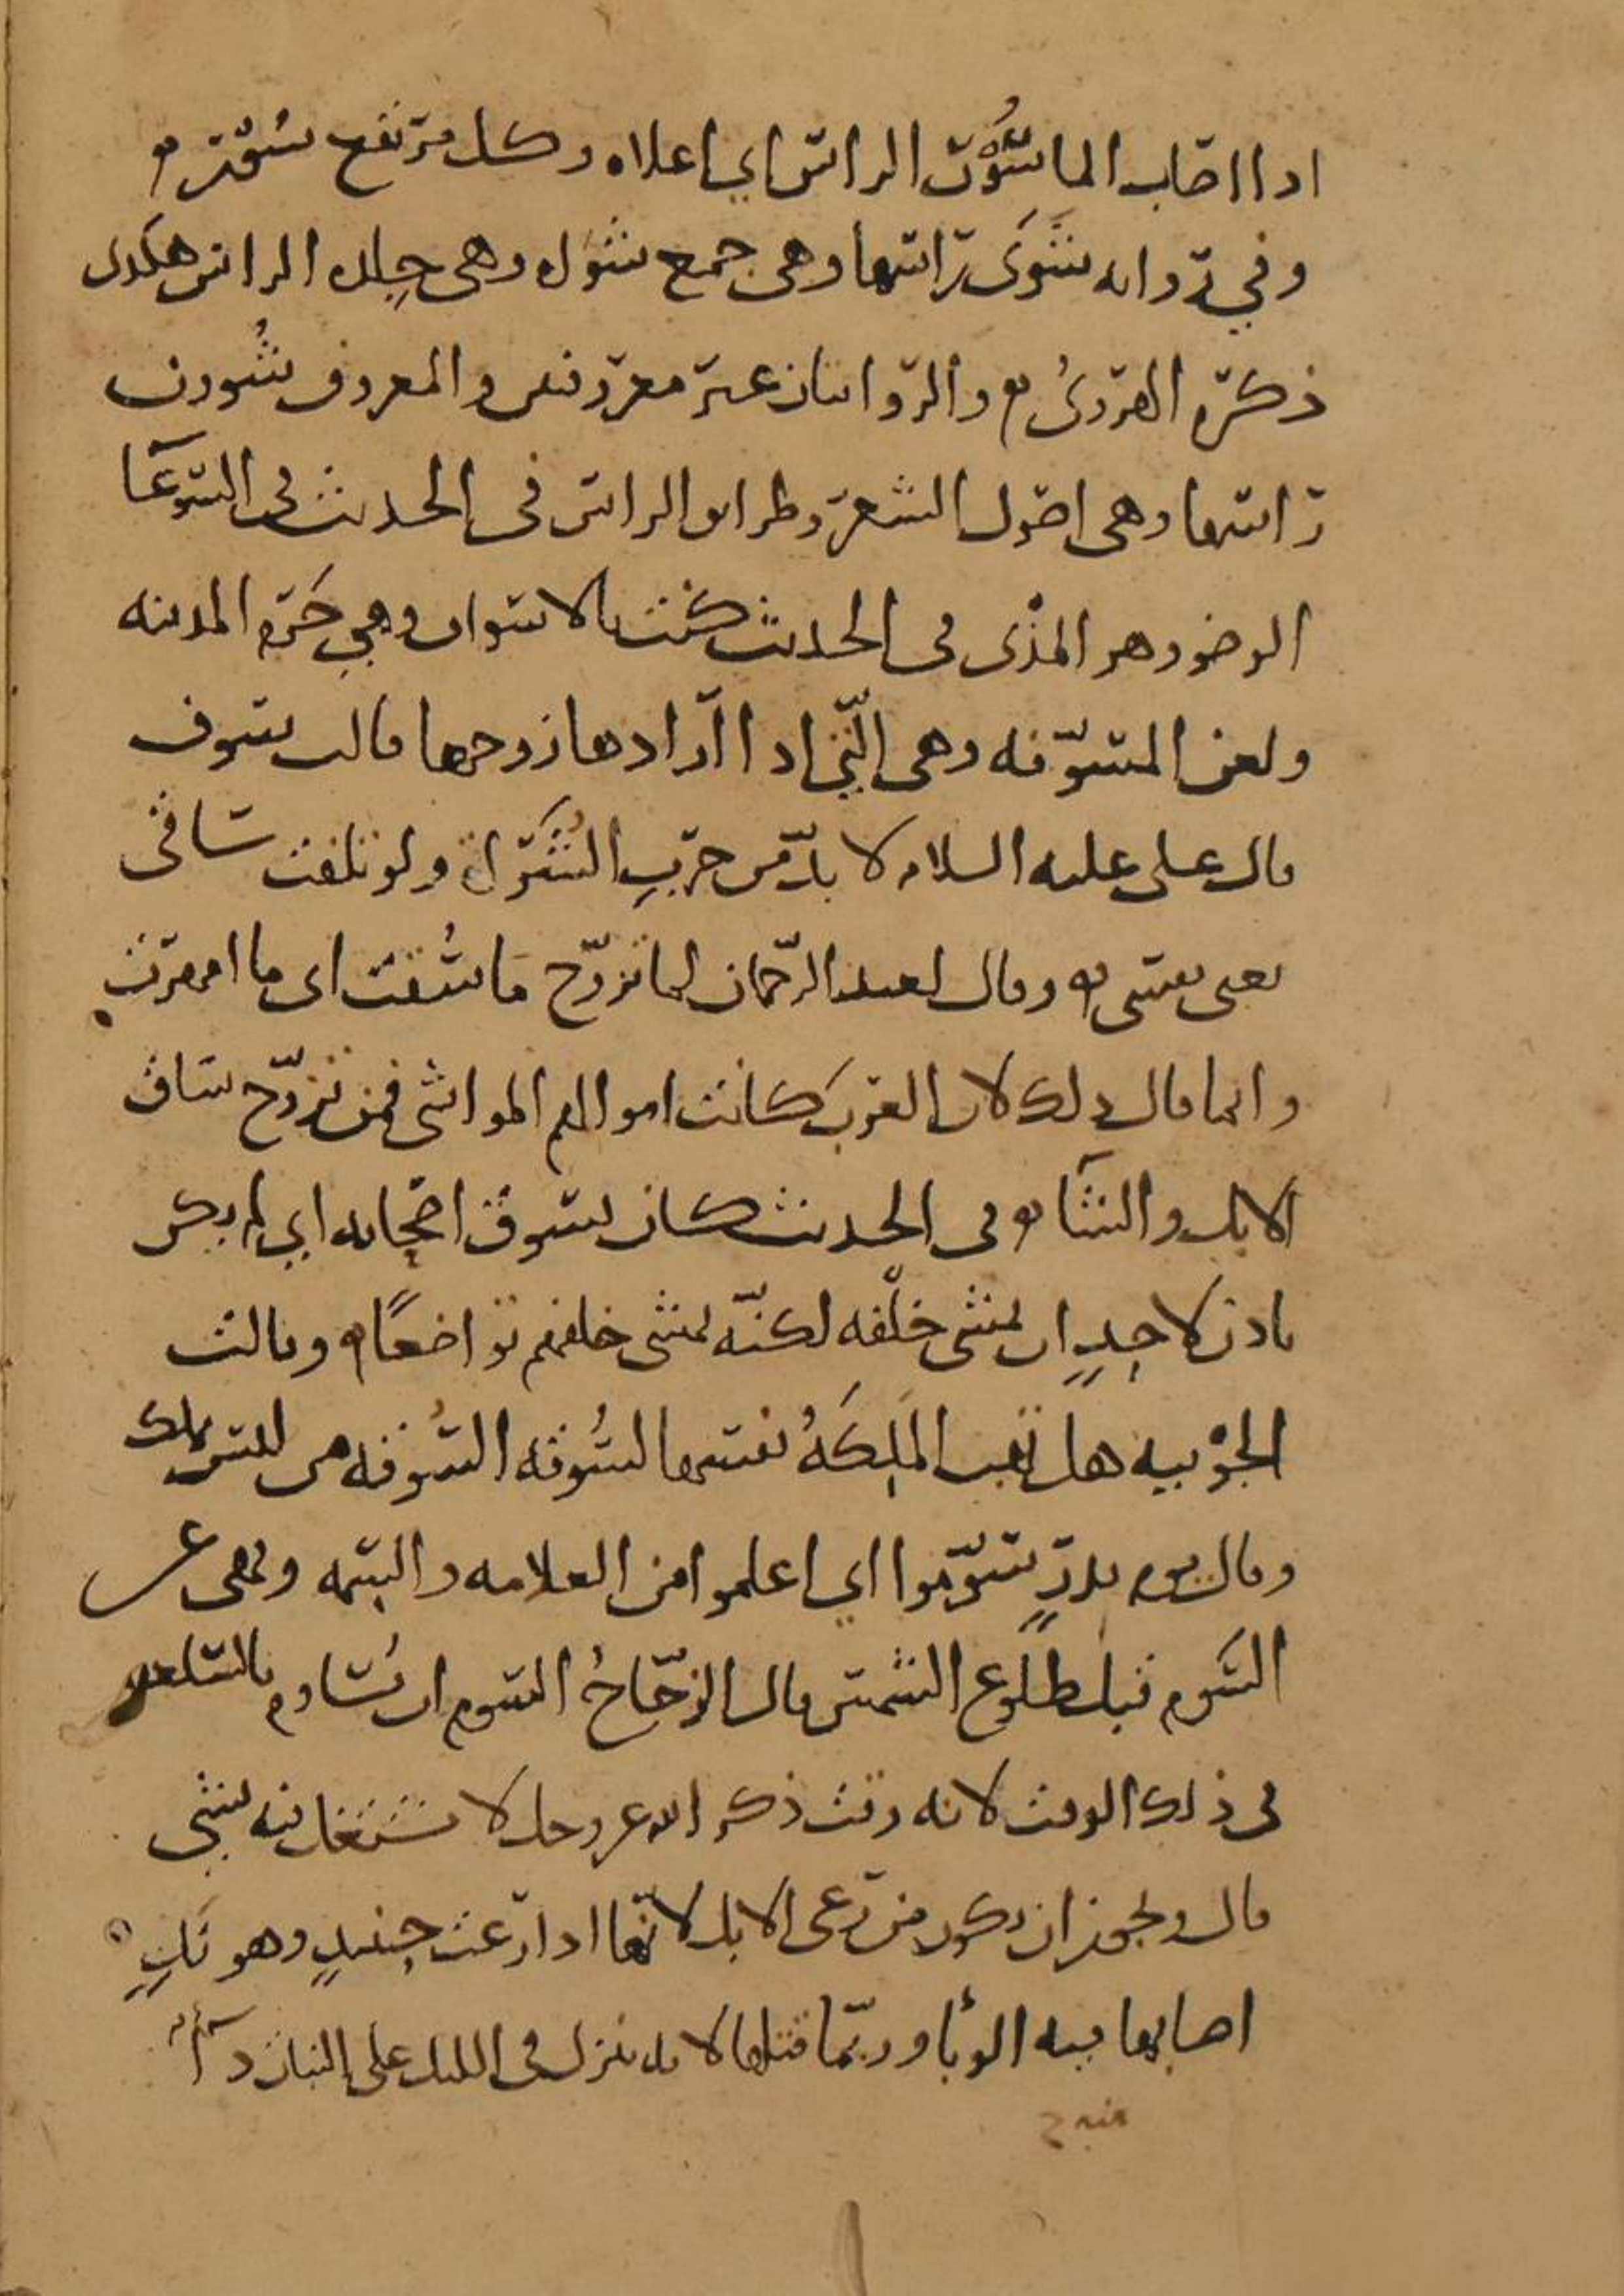 اذا اصاب الما سُوْرَ الراس اي اعلاه وكل مرتفع سُور
وفي رواية شَوَى راسها وهى جمع شواه وهى جِلده الراس هكذى
ذكره الهروىُ والروايتان غير معروفتين والمعروف شُوون
راسها وهى اصول الشعر وطرايق الراس فى الحديث فى السُوَعَا
الوضو وهو المذْى فى الحديث كنت بالاسواف وهى حَرَم المدينه
ولعن المسوّفه وهى الّتي اذا ارادها زوجها قالت سوف
قال على عليه السلام لا بدّ من حرب الشُراة ولو تلفت سَاقى
يعنى نفسى وقال لعبد الرحمان لما تزوّج مَا سُقت اى ما امهرت
وانما قال ذلك لان العرب كانت اموالهم المواشى فمن تزوّج ساق
الابل والشآ وفى الحديث كان يسوق اصحابه اي لم يكن
ياذن لاحدٍ ان يمشى خلْفه لكنّه يمشى خلفهم تواضعًا وقالت
الجوْنيه هل تهب المَلِكَةُ نفسها لسُوقه السُوقه من ليس بملك
وقال يوم بدرٍ سَوّموا اي اعلموا من العلامه والسِّمه ونهى عن
السَوم قبل طلوع الشمس قال الزجّاجُ السوم ان يُساوم بالسلعه
فى ذلك الوقت لانه وقت ذكر الله عز وجل لا يشتغل فيه بشىٍ
قال ويجوز ان يكون من رَعى الابل لانّها اذا رعت حِينيذٍ وهو نَدٍ
اصابها منه الوبأ وربّما قتلها لانه ينزل فى الليل على النبات دآ